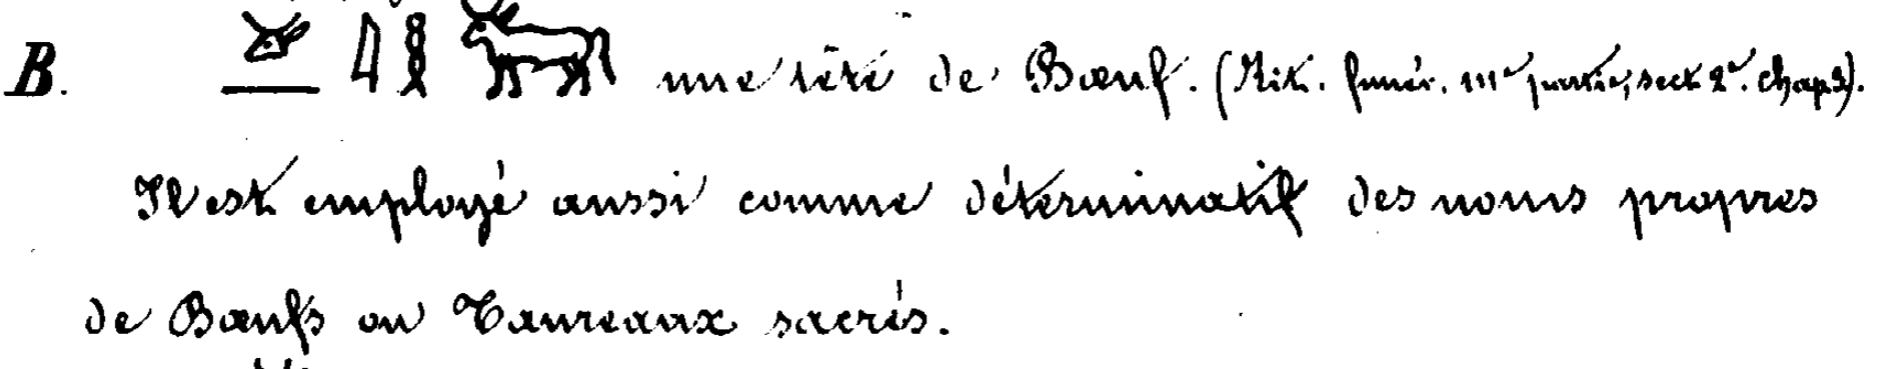 B. 𓃾 𓇋 𓎛 𓃒 une tête de Bœuf. (Rit. funér. IIIe partie, sect. 2e. chap. 2).
Il est employé aussi comme déterminatif des noms propres
de Bœufs ou Taureaux sacrés.